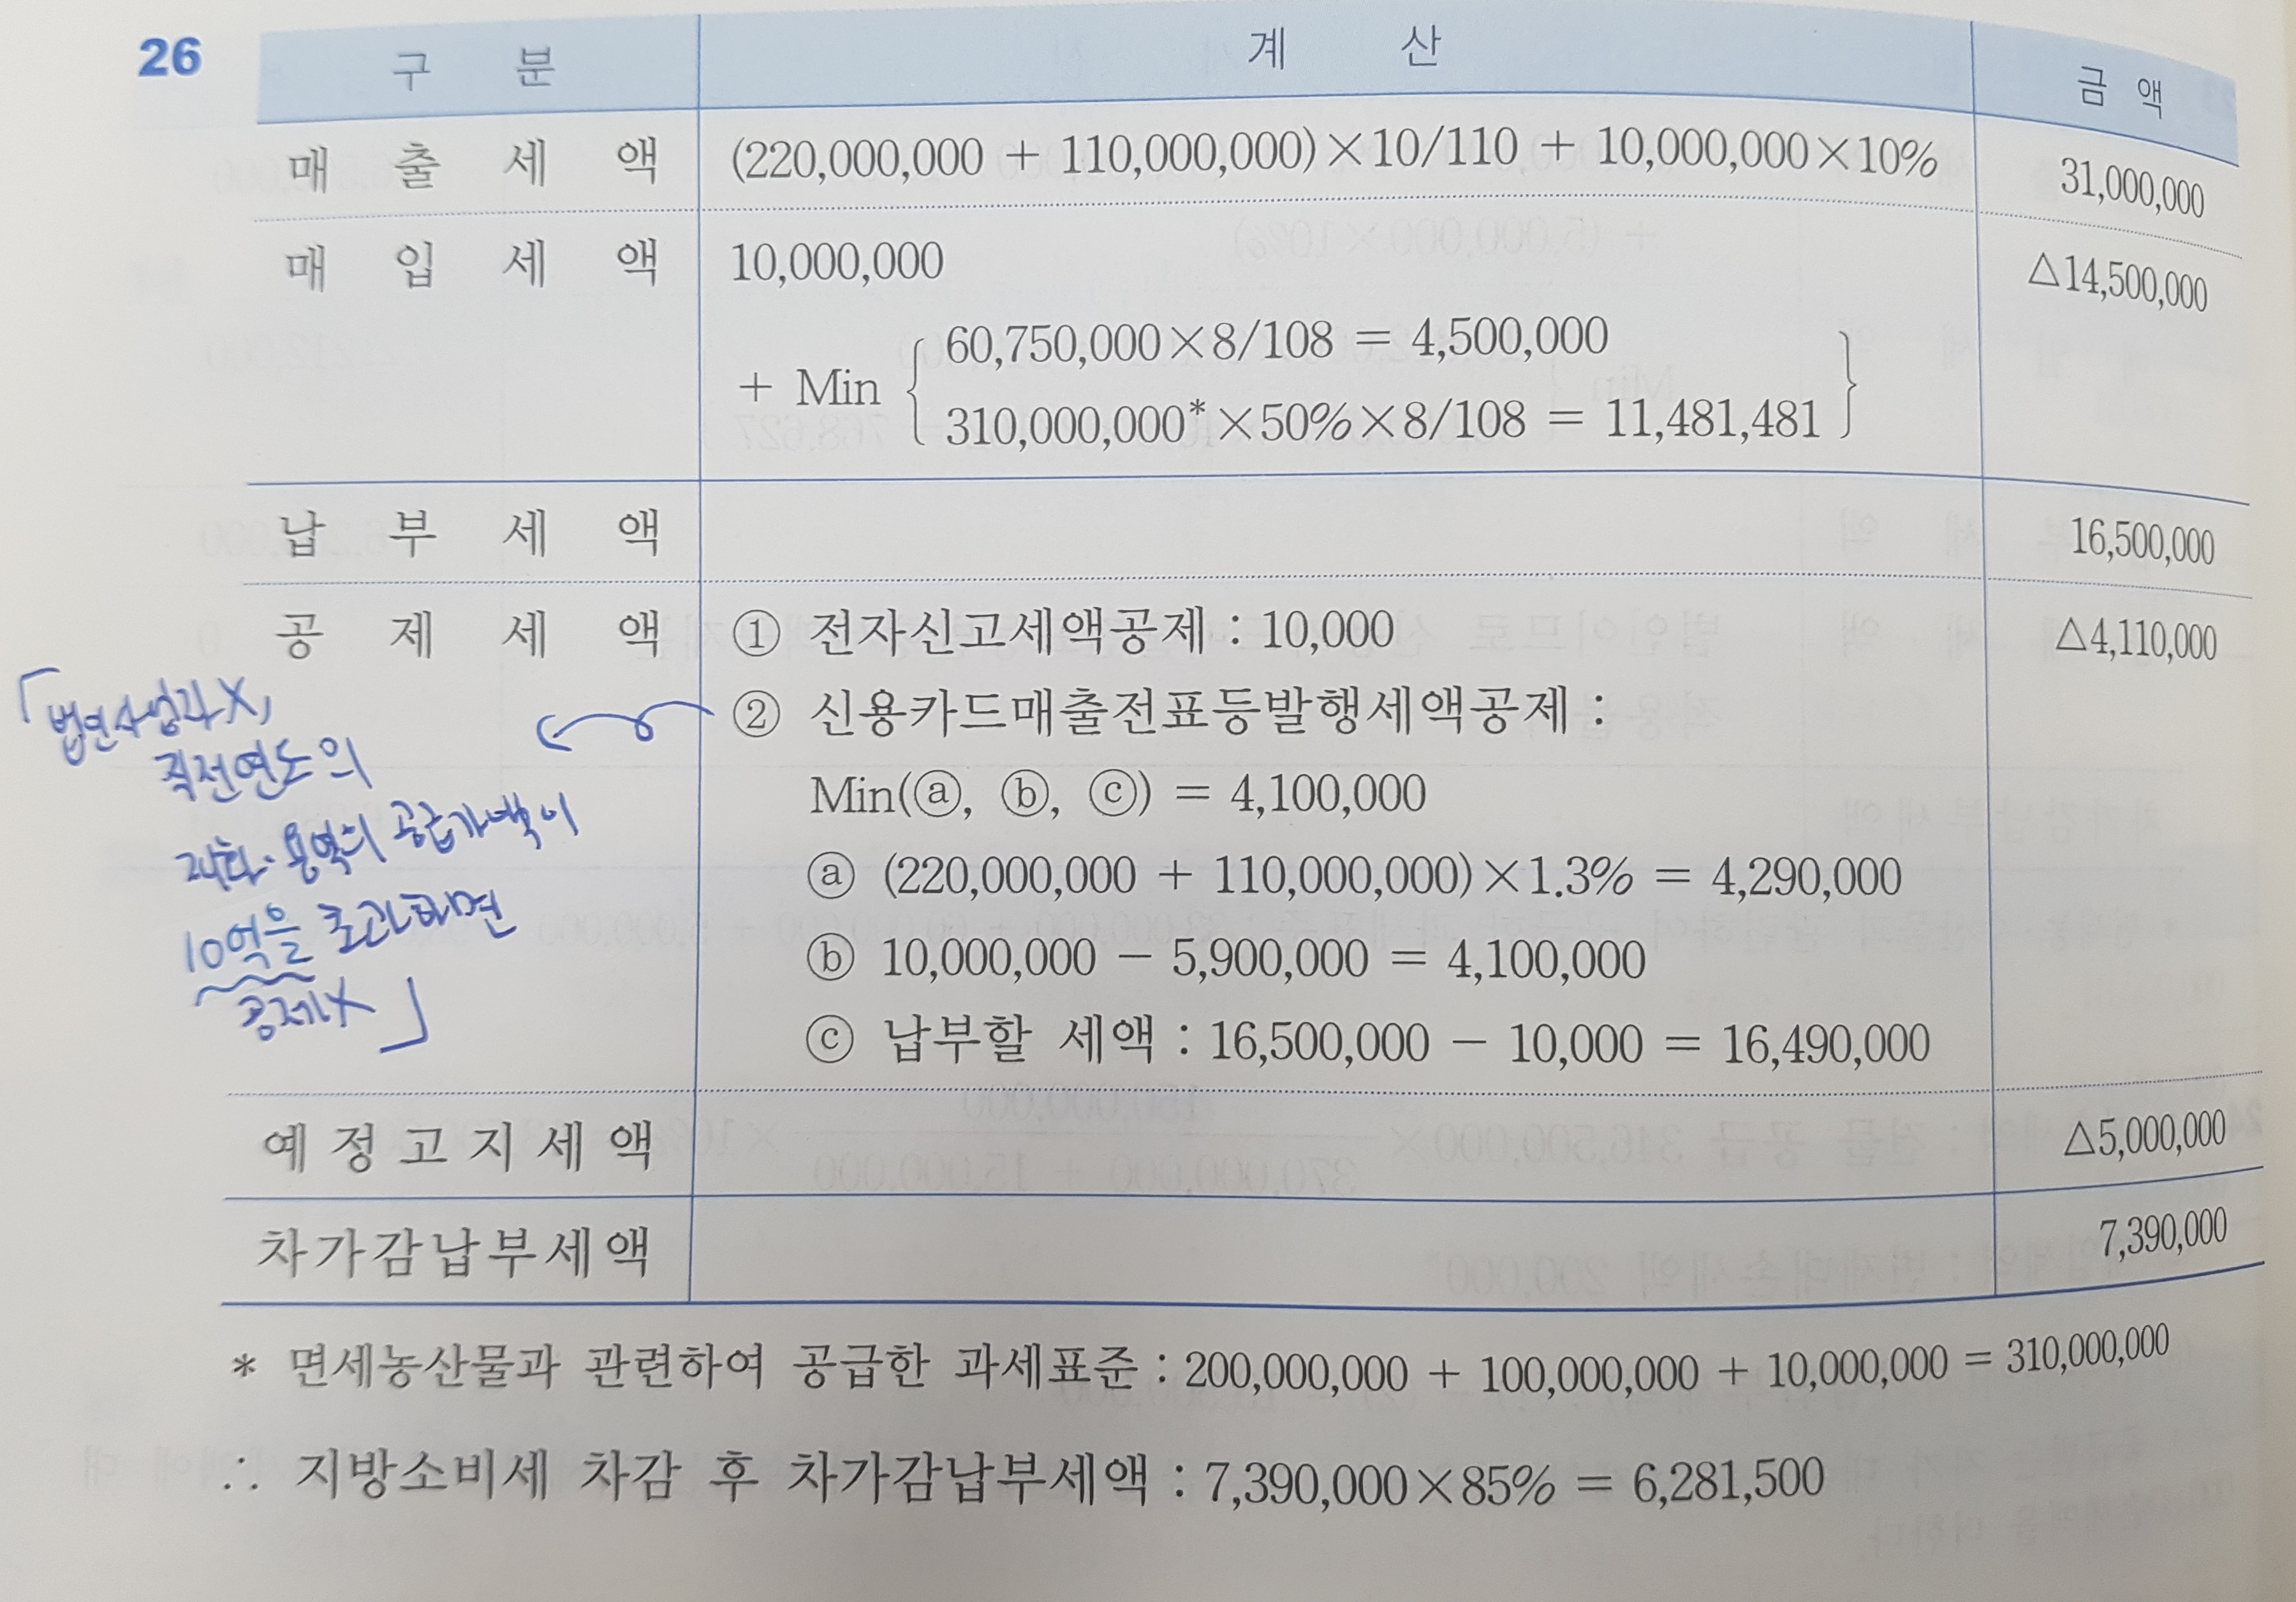 26
구 분 계 산 금 액
매 출 세 액 (220,000,000 + 110,000,000)×10/110 + 10,000,000×10% 31,000,000
매 입 세 액 10,000,000 △14,500,000
+ Min { 60,750,000×8/108 = 4,500,000
310,000,000*×50%×8/108 = 11,481,481 }
납 부 세 액 16,500,000
공 제 세 액 ① 전자신고세액공제 : 10,000 △4,110,000
② 신용카드매출전표등발행세액공제 :
Min(ⓐ, ⓑ, ⓒ) = 4,100,000
ⓐ (220,000,000 + 110,000,000)×1.3% = 4,290,000
ⓑ 10,000,000 − 5,900,000 = 4,100,000
ⓒ 납부할 세액 : 16,500,000 − 10,000 = 16,490,000
「법인사업자X,
직전연도의
재화·용역의 공급가액이
10억을 초과하면
공제X」
예정고지세액 △5,000,000
차가감납부세액 7,390,000
* 면세농산물과 관련하여 공급한 과세표준 : 200,000,000 + 100,000,000 + 10,000,000 = 310,000,000
∴ 지방소비세 차감 후 차가감납부세액 : 7,390,000×85% = 6,281,500